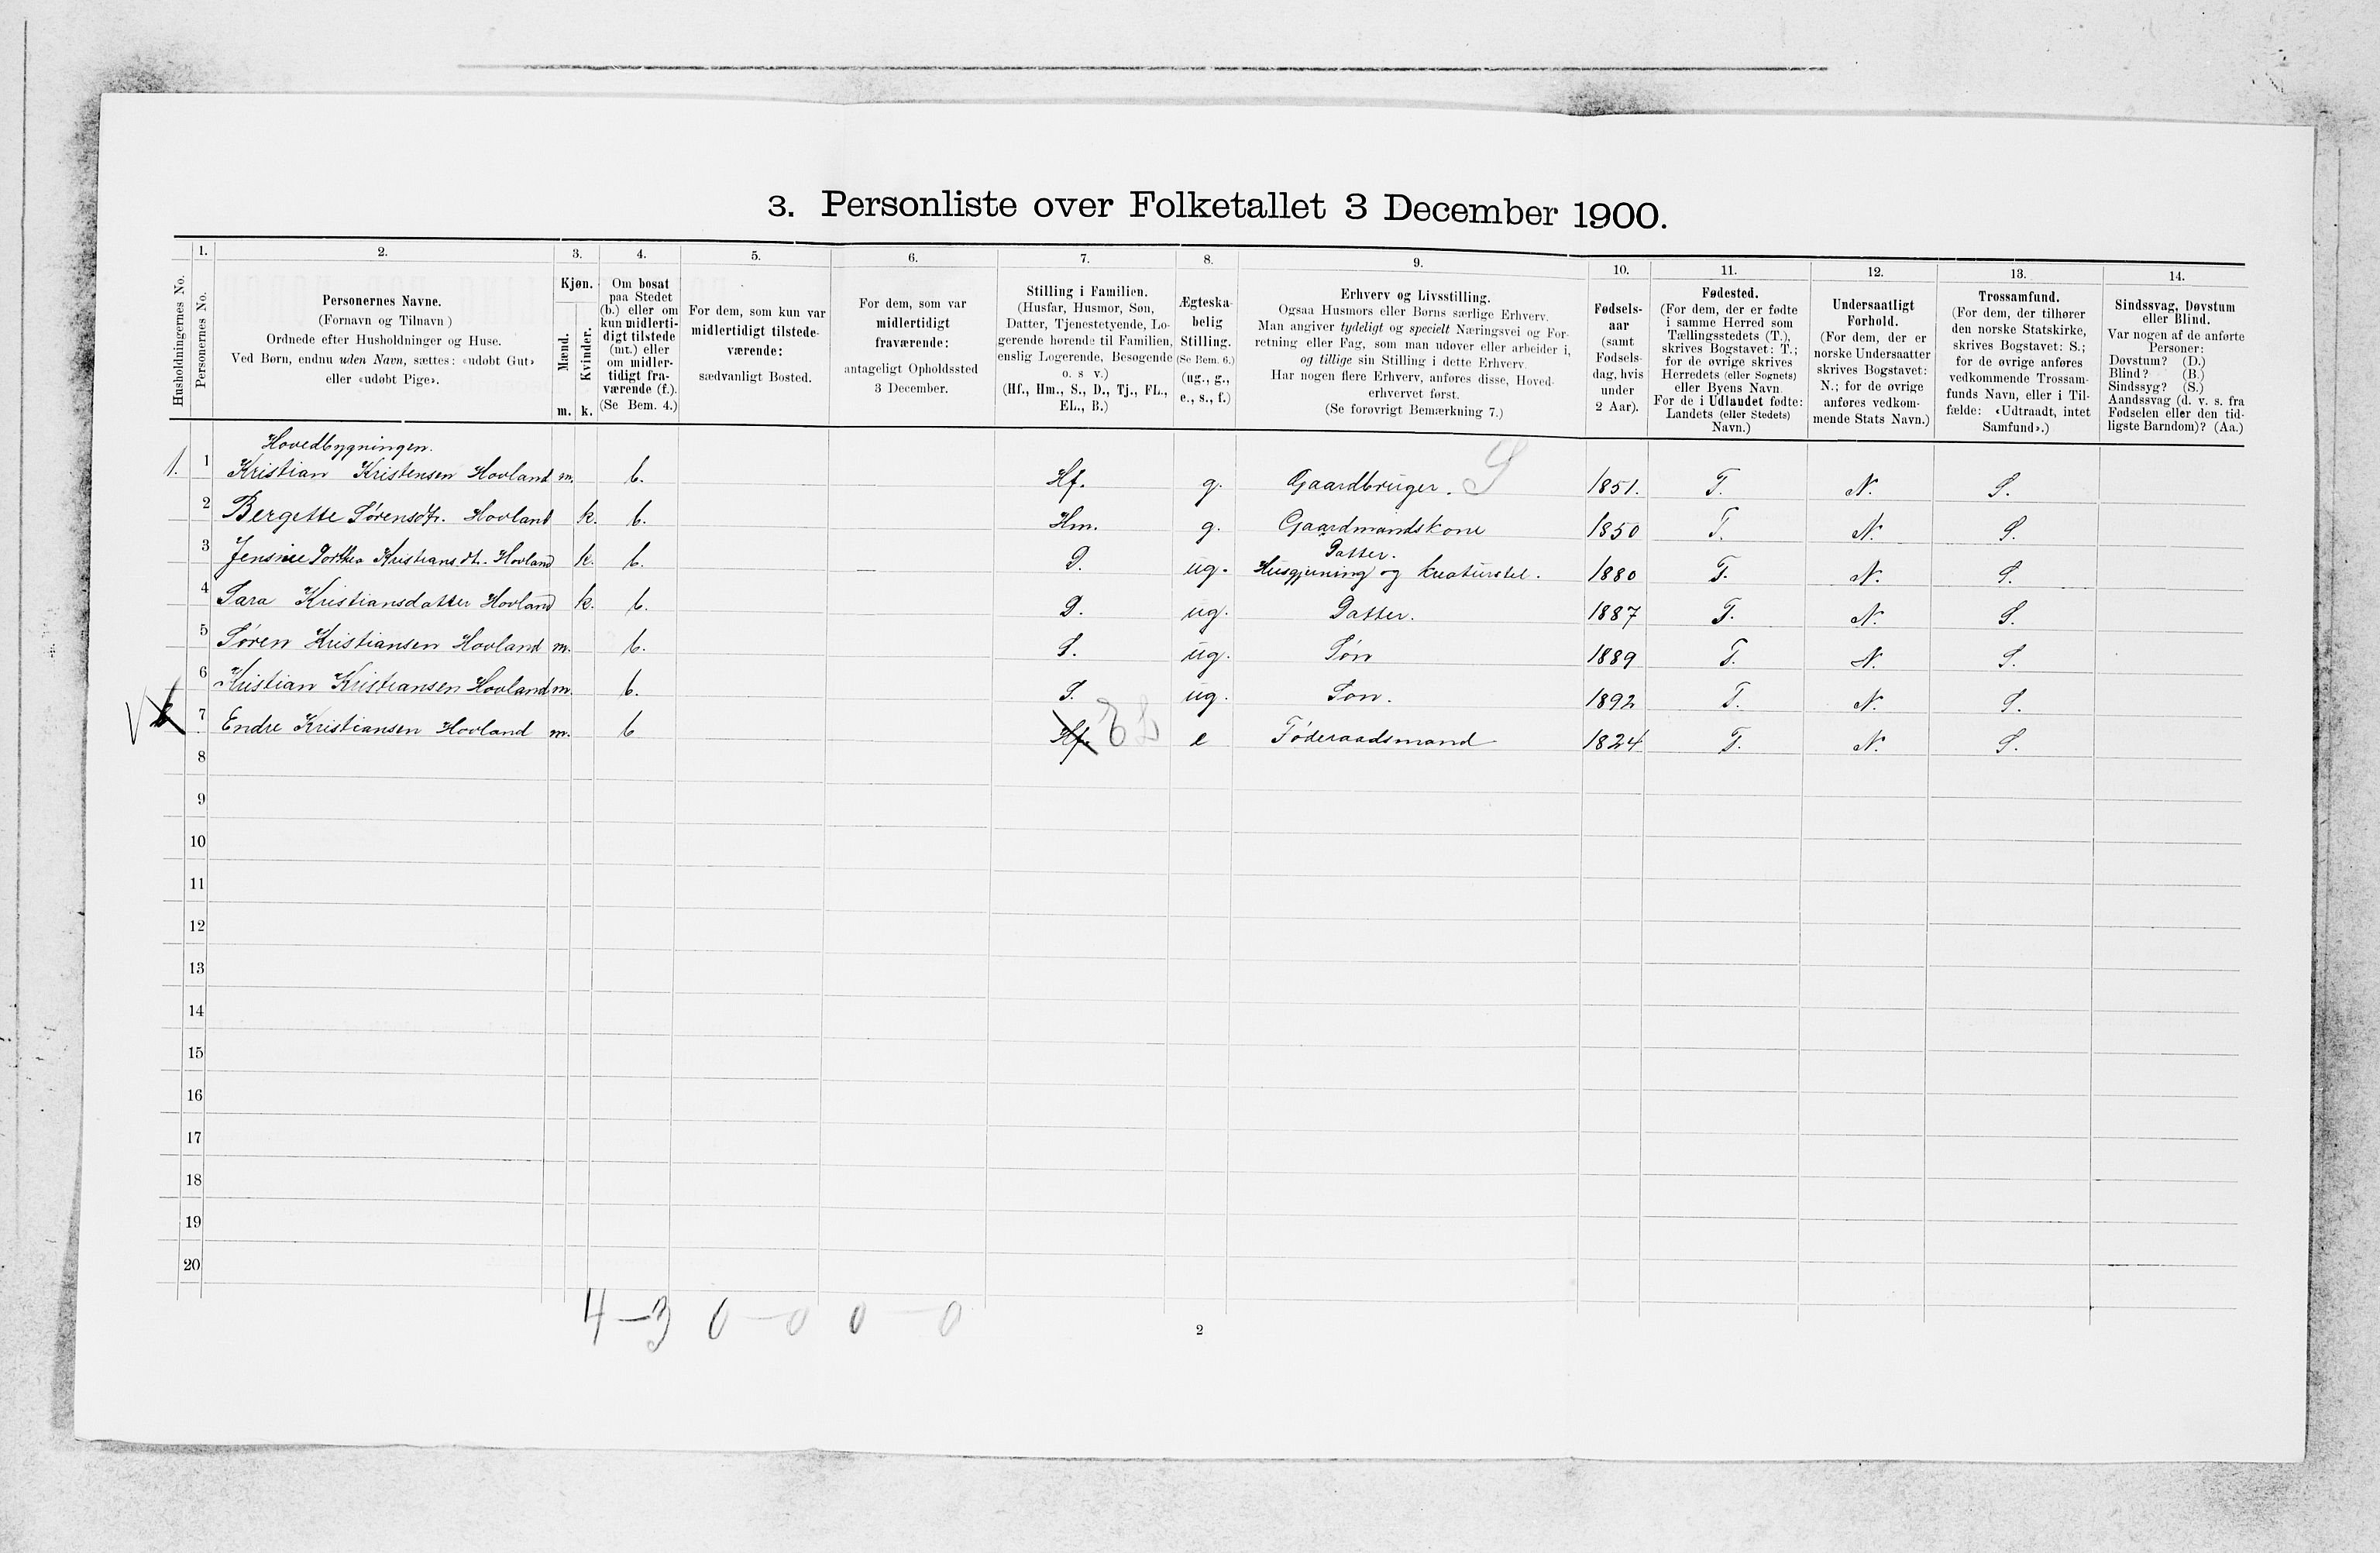 3. Personliste over Folketallet 3 December 1900.
1. 2. 3. 4. 5. 6. 7. 8. 9. 10. 11. 12. 13. 14.
Husholdningernes No.
Personernes No.
Personernes Navne.
(Fornavn og Tilnavn)
Ordnede efter Husholdninger og Huse.
Ved Børn, endnu uden Navn, sættes: «udøbt Gut»
eller «udøbt Pige».
Kjøn.
Mænd.
Kvinder.
m. k.
Om bosat
paa Stedet
(b.) eller om
kun midlerti-
digt tilstede
(mt.) eller
om midler-
tidigt fra-
værende (f.).
(Se Bem. 4.)
For dem, som kun var
midlertidigt tilstede-
værende:
sædvanligt Bosted.
For dem, som var
midlertidigt
fraværende:
antageligt Opholdssted
3 December.
Stilling i Familien.
(Husfar, Husmor, Søn,
Datter, Tjenestetyende, Lo-
gerende hørende til Familien,
enslig Logerende, Besøgende
o. s v.)
(Hf., Hm., S., D., Tj., FL.,
EL., B.)
Ægteska-
belig
Stilling.
(Se Bem. 6.)
(ug., g.,
e., s., f.)
Erhverv og Livsstilling.
Ogsaa Husmors eller Børns særlige Erhverv.
Man angiver tydeligt og specielt Næringsvei og For-
retning eller Fag, som man udøver eller arbeider i,
og tillige sin Stilling i dette Erhverv.
Har nogen flere Erhverv, anføres disse, Hoved-
erhvervet først.
(Se forøvrigt Bemærkning 7.)
Fødsels-
aar
(samt
Fødsels-
dag, hvis
under
2 Aar).
Fødested.
(For dem, der er fødte
i samme Herred som
Tællingsstedets (T.),
skrives Bogstavet: T.;
for de øvrige skrives
Herredets (eller Sognets)
eller Byens Navn
For de i Udlandet fødte:
Landets (eller Stedets)
Navn.)
Undersaatligt
Forhold.
(For dem, der er
norske Undersaatter
skrives Bogstavet:
N.; for de øvrige
anføres vedkom-
mende Stats Navn.)
Trossamfund.
(For dem, der tilhører
den norske Statskirke,
skrives Bogstavet: S.;
for de øvrige anføres
vedkommende Trossam-
funds Navn, eller i Til-
fælde: «Udtraadt, intet
Samfund».)
Sindssvag, Døvstum
eller Blind.
Var nogen af de anførte
Personer:
Døvstum? (D.)
Blind? (B.)
Sindssyg? (S.)
Aandssvag (d. v. s. fra
Fødselen eller den tid-
ligste Barndom)? (Aa.)
Hovedbygningen.
1. 1 Kristian Kristensen Hovland m. b. Hf. g. Gaardbruger. S 1851. T. N. S.
2 Bergette Sørensdtr. Hovland k. b. Hm. g. Gaardmandskone 1850 T. N. S.
Datter.
3 Jensine Dorthea Kristiansdt. Hovland k. b. D. ug. Husgjerning og Kreaturstel. 1880 T. N. S.
4 Sara Kristiansdatter Hovland k. b. D. ug. Datter. 1887 T. N. S.
5 Søren Kristiansen Hovland m. b. S. ug. Søn 1889 T. N. S.
6 Kristian Kristiansen Hovland m. b. S. ug. Søn. 1892 T. N. S.
7 Endre Kristiansen Hovland m. b Hf. EL e Føderaadsmand 1824 T. N. S.
8
9
10
11
12
13
14
15
16
17
18
19
20
4 - 3 0 - 0 0 - 0
2